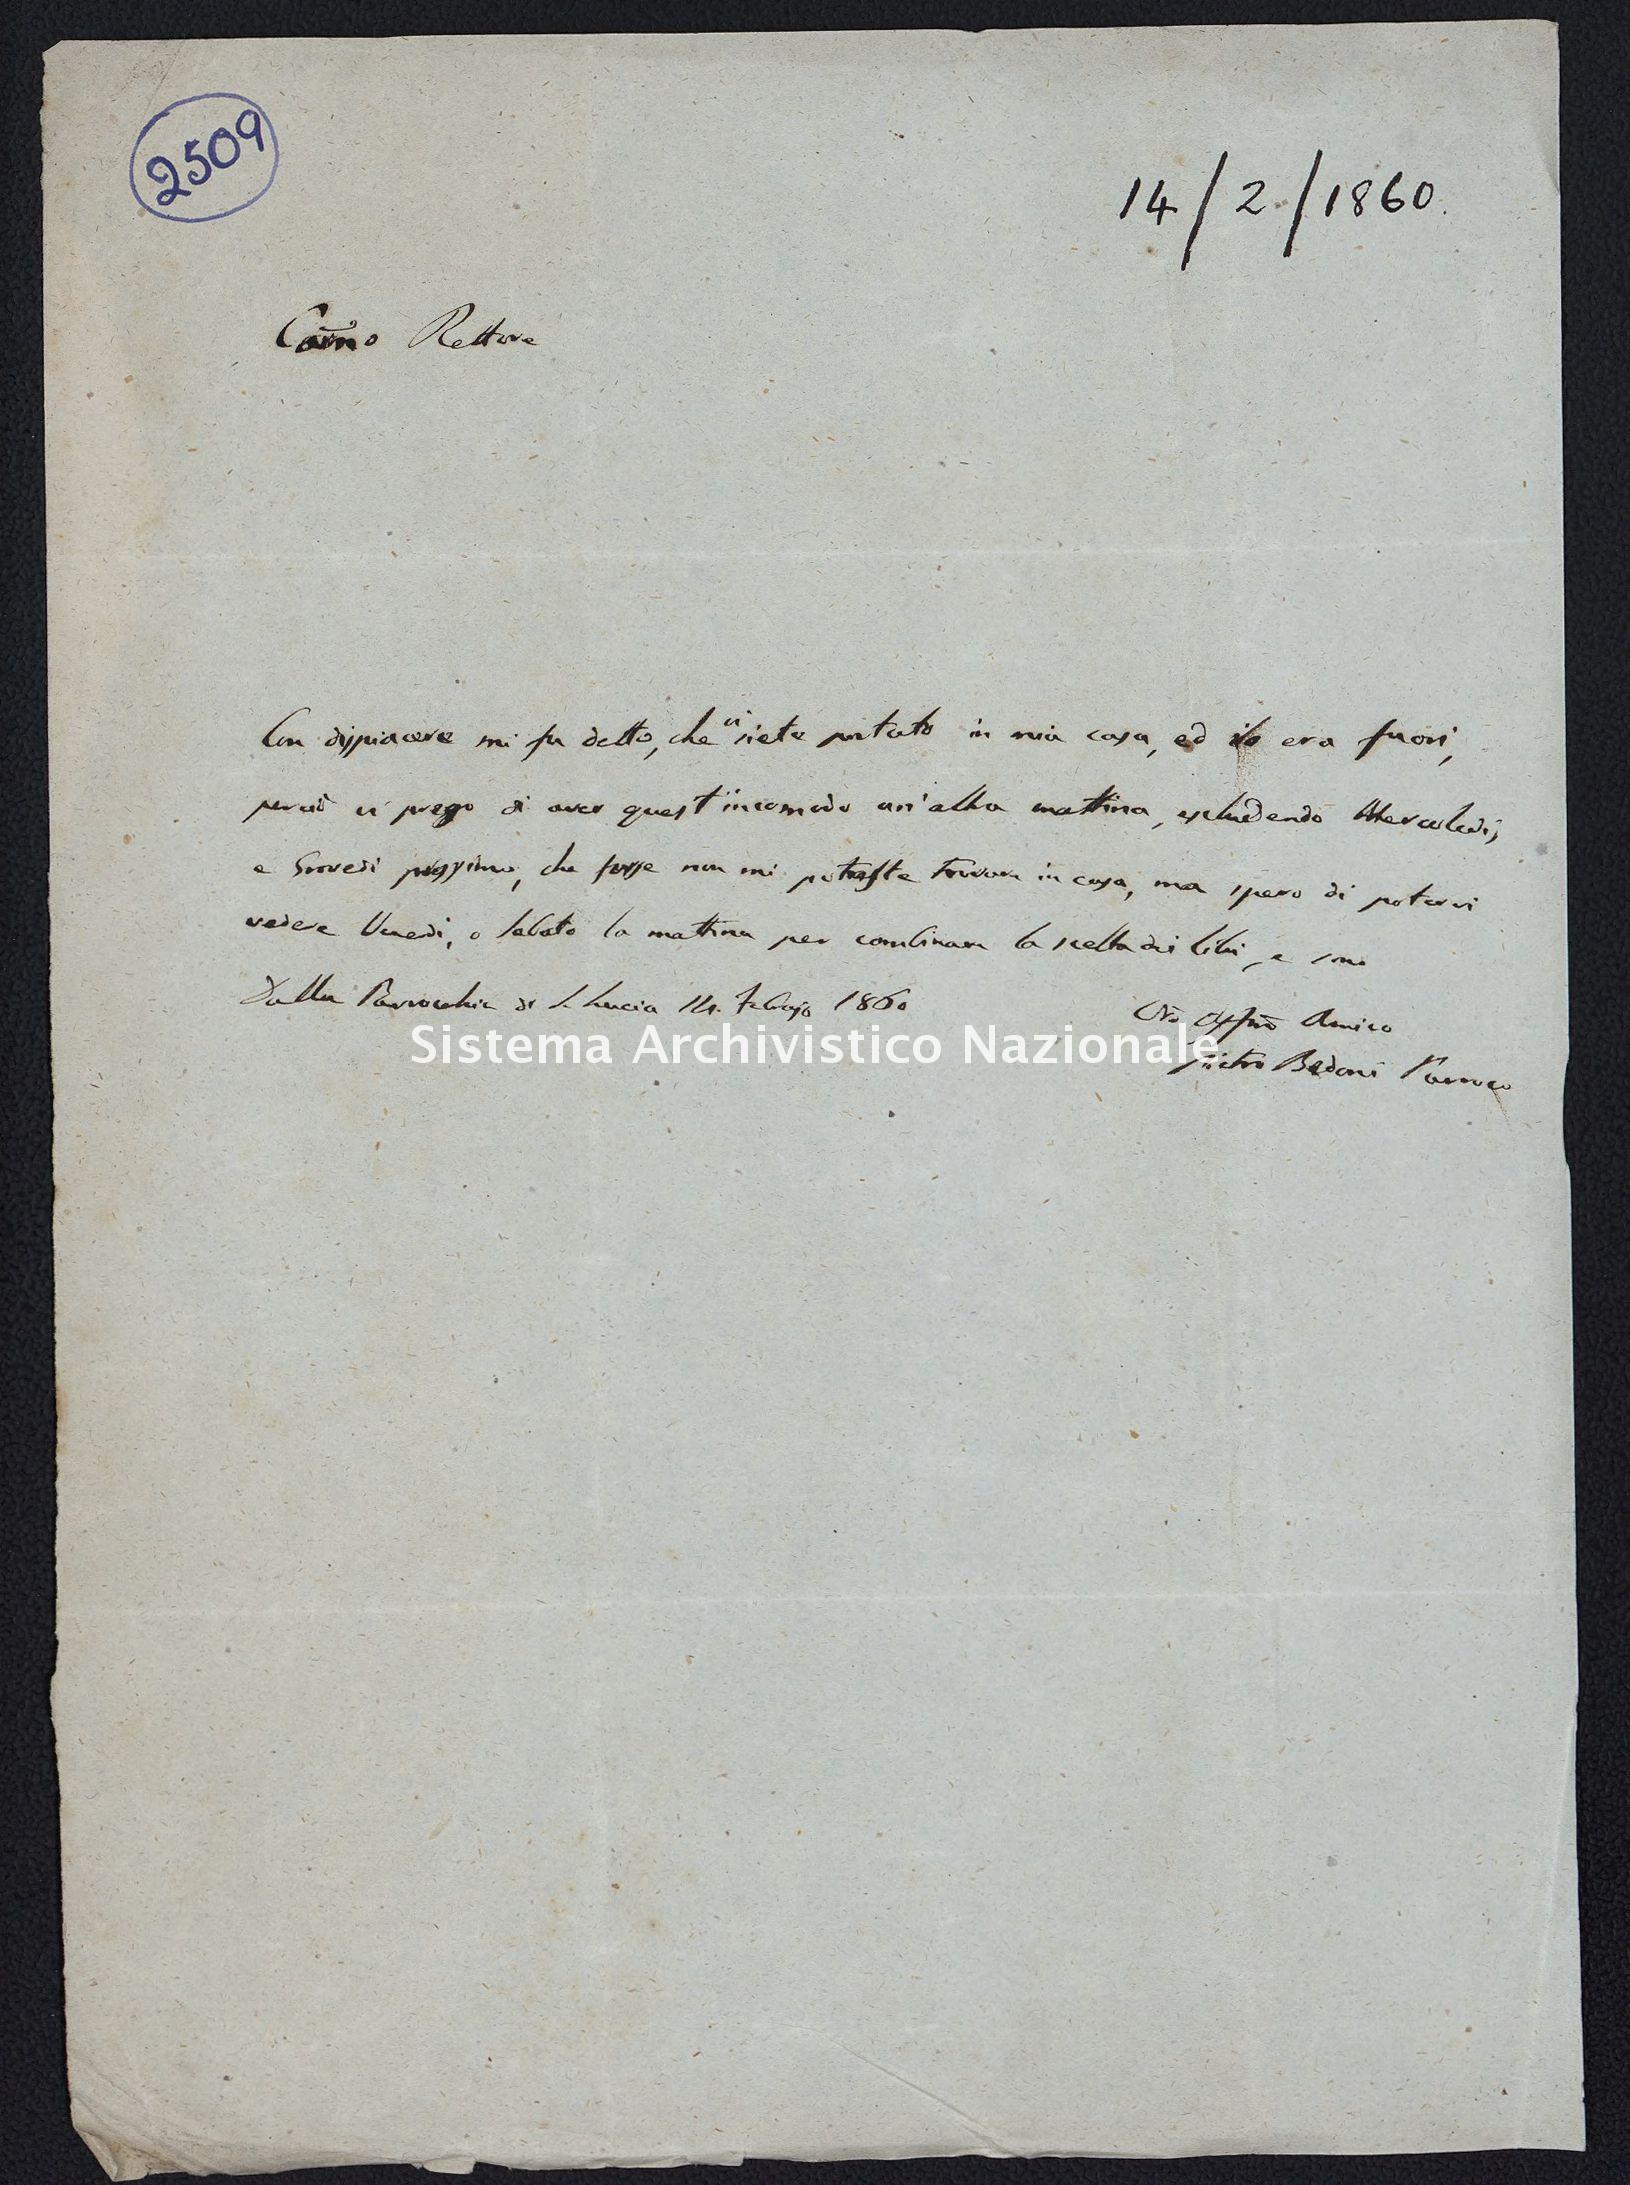 2509
14/2/1860.
Carmo Rettore
Con dispiacere mi fu detto, che vi siete portato in mia casa, ed io era fuori,
perciò vi prego di aver quest'incomodo un'altra mattina, escludendo Mercoledì,
e Giovedì prossimo, che forse non mi potreste trovare in casa, ma spero di potervi
vedere Venerdì, o Sabato la mattina per combinare la scelta dei libri, e sono
Dalla Parrocchia di S. Lucia 14. Febrajo 1860
Vro Affmo Amico
Pietro Bedoni Parroco
Sistema Archivistico Nazionale